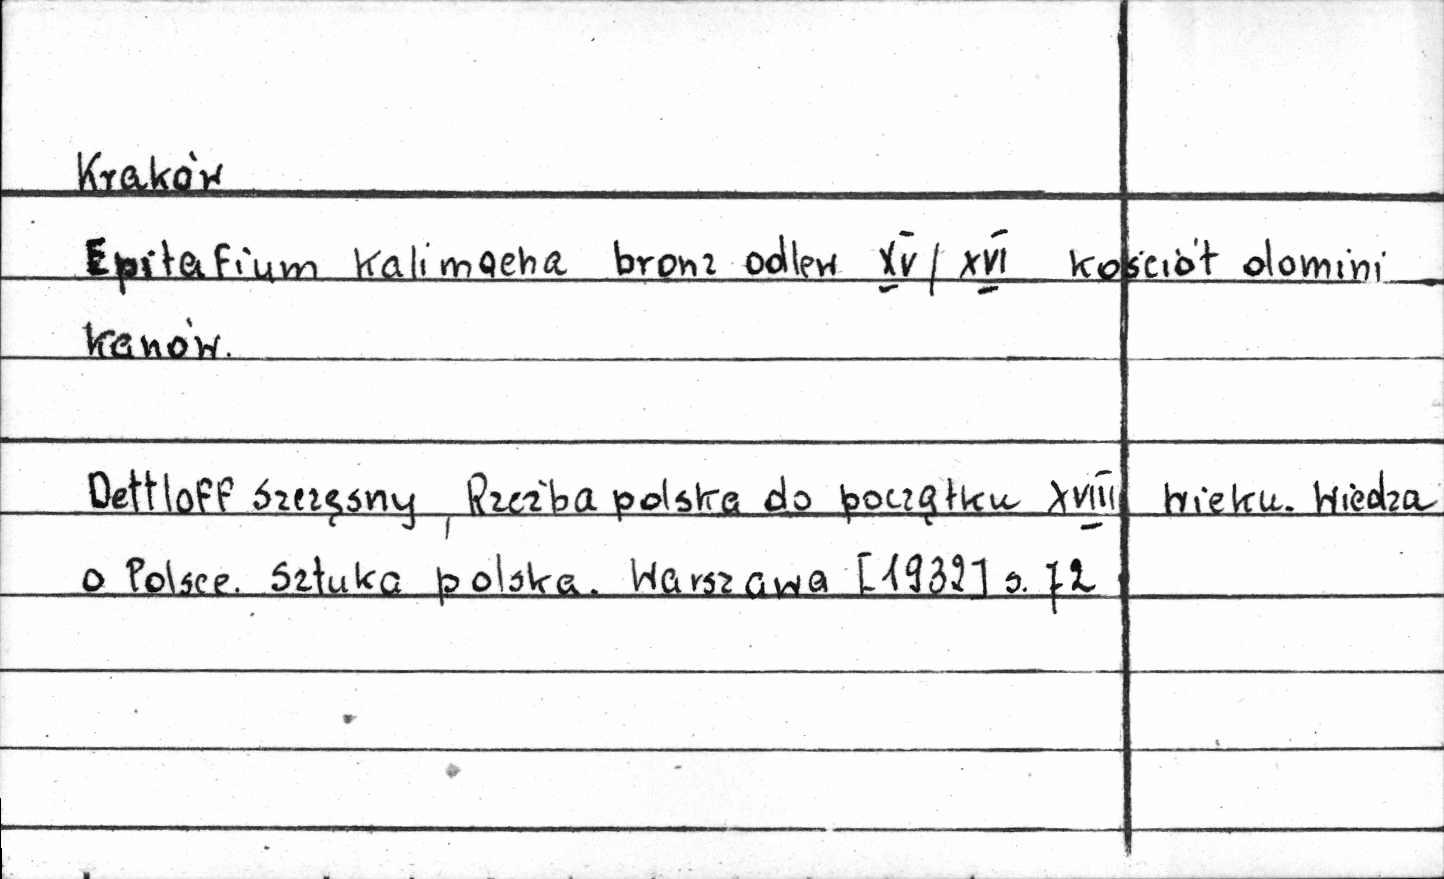 Kraków
Epitafium Kalimacha bronz odlew XV/XVI kościół domini
kanów.
Dettloff Szczęsny, Rzeźba polska do początku XVIII wieku. Wiedza
o Polsce. Sztuka polska. Warszawa [1932] s. 72